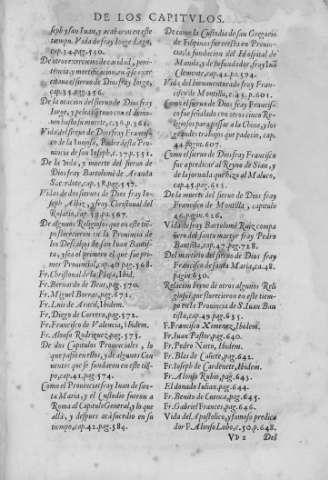 DE LOS CAPITVLOS.
seph y san Iuan, y acabaron en este
tiempo. Vida de fray Iorge Lego,
cap. 34. pag. 530.
De otros exercicios de caridad, peni-
tencia, y mortificacion, en q̃ se exer-
citaua el sieruo de Dios fray Iorge,
cap. 35. pag. 536.
De la oracion del sieruo de Dios fray
Iorge, y peleas que tuuo con el demo-
nio hasta su muerte, c. 36. p. 562.
Vida del sieruo de Dios fray Francis-
co de la Inojosa, Padre desta Pro-
uincia de san Ioseph, c. 37. p. 552.
De la vida, y muerte del sieruo de
Dios fray Bartolomè de Aranta
Sacerdote, cap. 38. pag. 557.
Vidas de dos sieruos de Dios fray Io-
seph Albiz, y fray Christoual del
cap. 39. pag. 567.
De algunos Religiosos que en este tiẽ-
po florecieron en la Prouincia de
los Descalços de san Iuan Bautis-
ta, y en el primero que fue pri-
mer Prouincial, c. 40. pag. 568.
Fr. Christoual de la Plaça, Ibid.
Fr. Bernardo de Bear, pag. 570.
Fr. Miguel Borras, pag. 571.
Fr. Luis de Ibidem.
Fr. Diego de Carrera, pag. 572.
Fr. Francisco de Valencia, Ibidem.
Fr. Alonso Rodriguez, pag. 573.
De dos Capitulos Prouinciales, lo
que passò en ellos, y de algunos Con-
uentos que se fundaron en este tiẽ-
po, cap. 41. pag. 574.
Como el Prouincial fray Iuan de san-
ta Maria, y el Custodio fueron a
Roma al Capitulo General, y lo que
allà, y despues acà sucedio en su
tiempo, cap. 42. pag. 584.
De como la Custodia de san Gregorio
de Filipinas fue erecta en Prouin-
cia, la fundacion del Hospital de
Manila, y de su fundador fray Iuã
Clemente, cap. 42. pa. 594.
Vida del bienauenturado fray Fran-
cisco de Montilla, c. 43. p. 601.
Como el sieruo de Dios fray Francisco
fue señalado con otros cinco Reli-
giosos para passar a la China, y los
grandes trabajos que padecio, cap.
44. pagin. 607.
Como el sieruo de Dios fray Francisco
fue a predicar al Reyno de Sian, y
de la jornada que hizo al Maluco,
cap. 45. pag. 615.
De la muerte del sieruo de Dios fray
Francisco de Montilla, capitulo
46. pagin. 626.
Vida de fray Bartolomè Ruiz, compa-
ñero del santo martyr fray Pedro
Bautista, cap. 47. pag. 728.
Del martirio del sieruo de Dios fray
Francisco de santa Maria, ca. 48.
pagin. 630.
Relacion breue de otros algunos Reli-
giosos que florecieron en este tiem-
po en la Prouincia de S. Iuan Bau-
tista, cap. 49. pag. 635.
F. Francisco Ximenez, Ibidem.
Fr. Iuan Pastor, pag. 640.
Fr. Pedro Nieto, Ibidem.
Fr. Blas de Cañete, pag. 642.
Fr. Ioseph de Cardenete, Ibidem.
Fr. Alonso Rubio, pag. 643.
El donado Iulian, pag. 644.
Fr. Benito de Cuenca, pag. 645.
Fr. Gabriel Frances, pag. 646.
Vida del Apostolico, y famoso predica-
dor F. Alonso Lobo, c. 50. p. 648.
Vv 2 Del